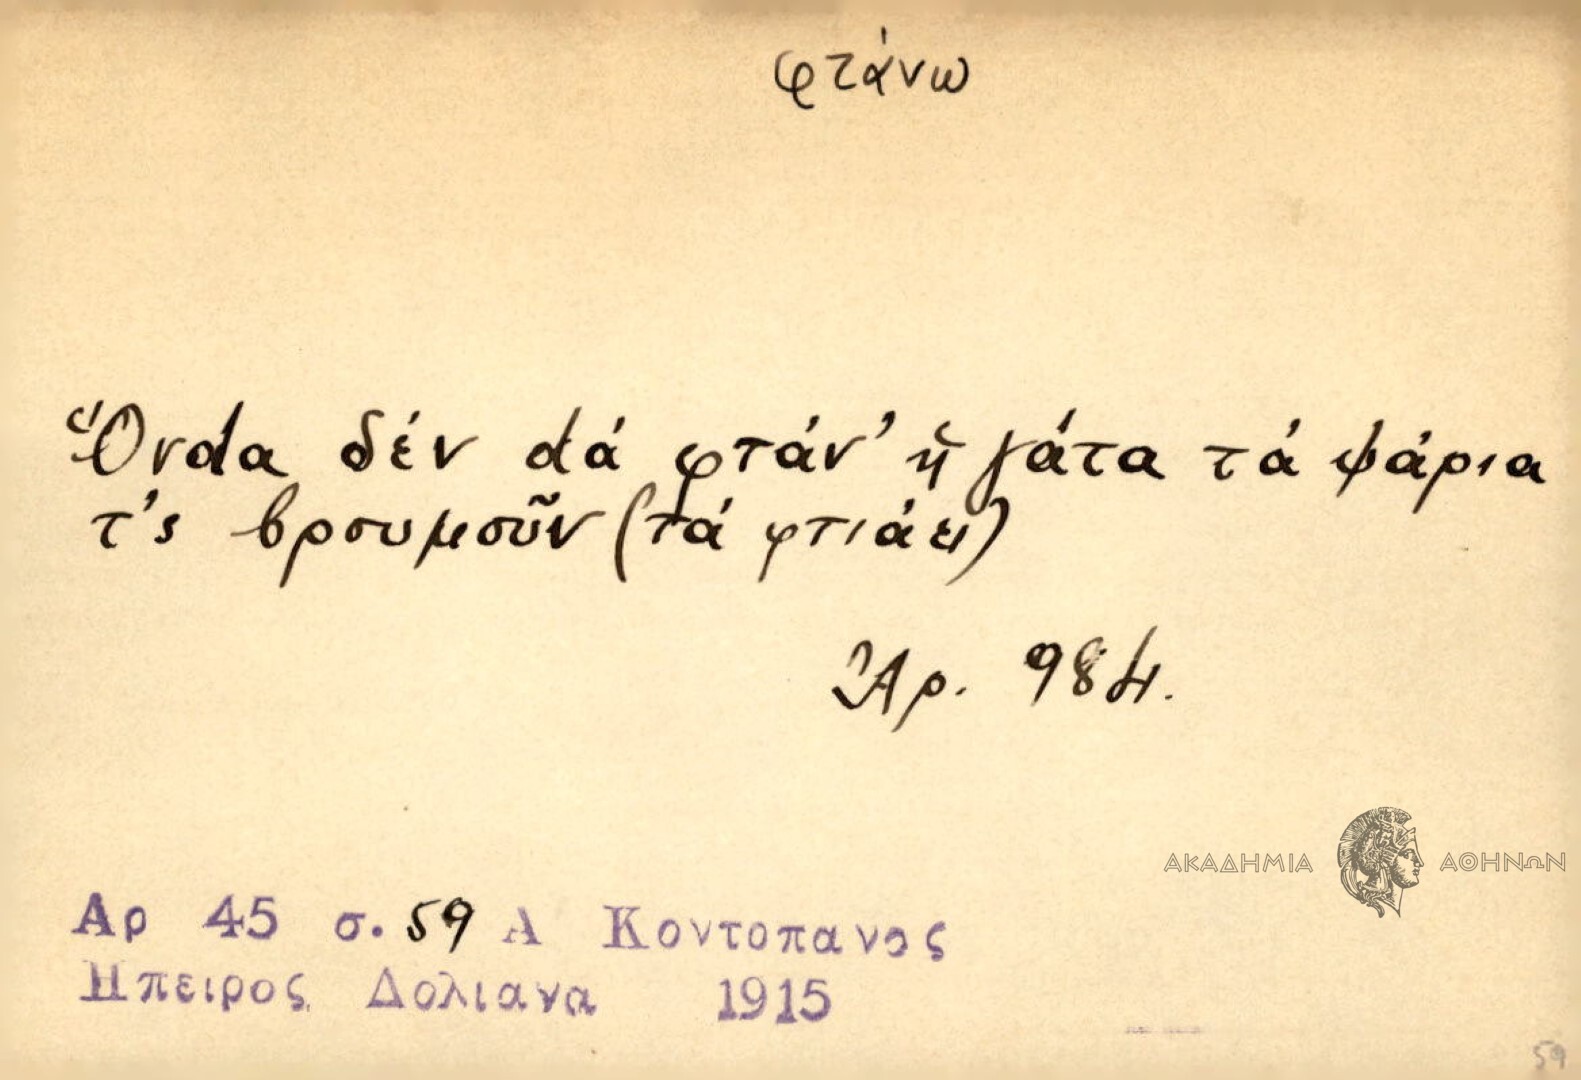 φτάνω
Ὅνdα δέν dά φτάν' ἡ γάτα τά ψάρια
τ'ς βρουμοῦν (τά φτιάει)
Ἀρ. 984.
ΑΚΑΔΗΜΙΑ ΑΘΗΝΩΝ
Αρ 45 σ. 59 Α Κοντοπανος
Ηπειρος Δολιανα 1915
59